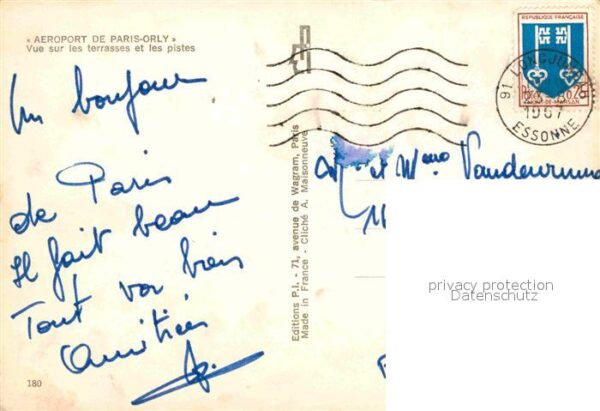 « AEROPORT DE PARIS-ORLY »
Vue sur les terrasses et les pistes
Un bonjour
de Paris
Il fait beau
Tout va bien
Amitiés
180
Editions P.I. - 71, avenue de Wagram, Paris
Made in France - Cliché A. Maisonneuve
REPUBLIQUE FRANÇAISE
MONT-DE-MARSAN
91 LONGJUMEAU
1967
ESSONNE
Mr et Mme
privacy protection
Datenschutz